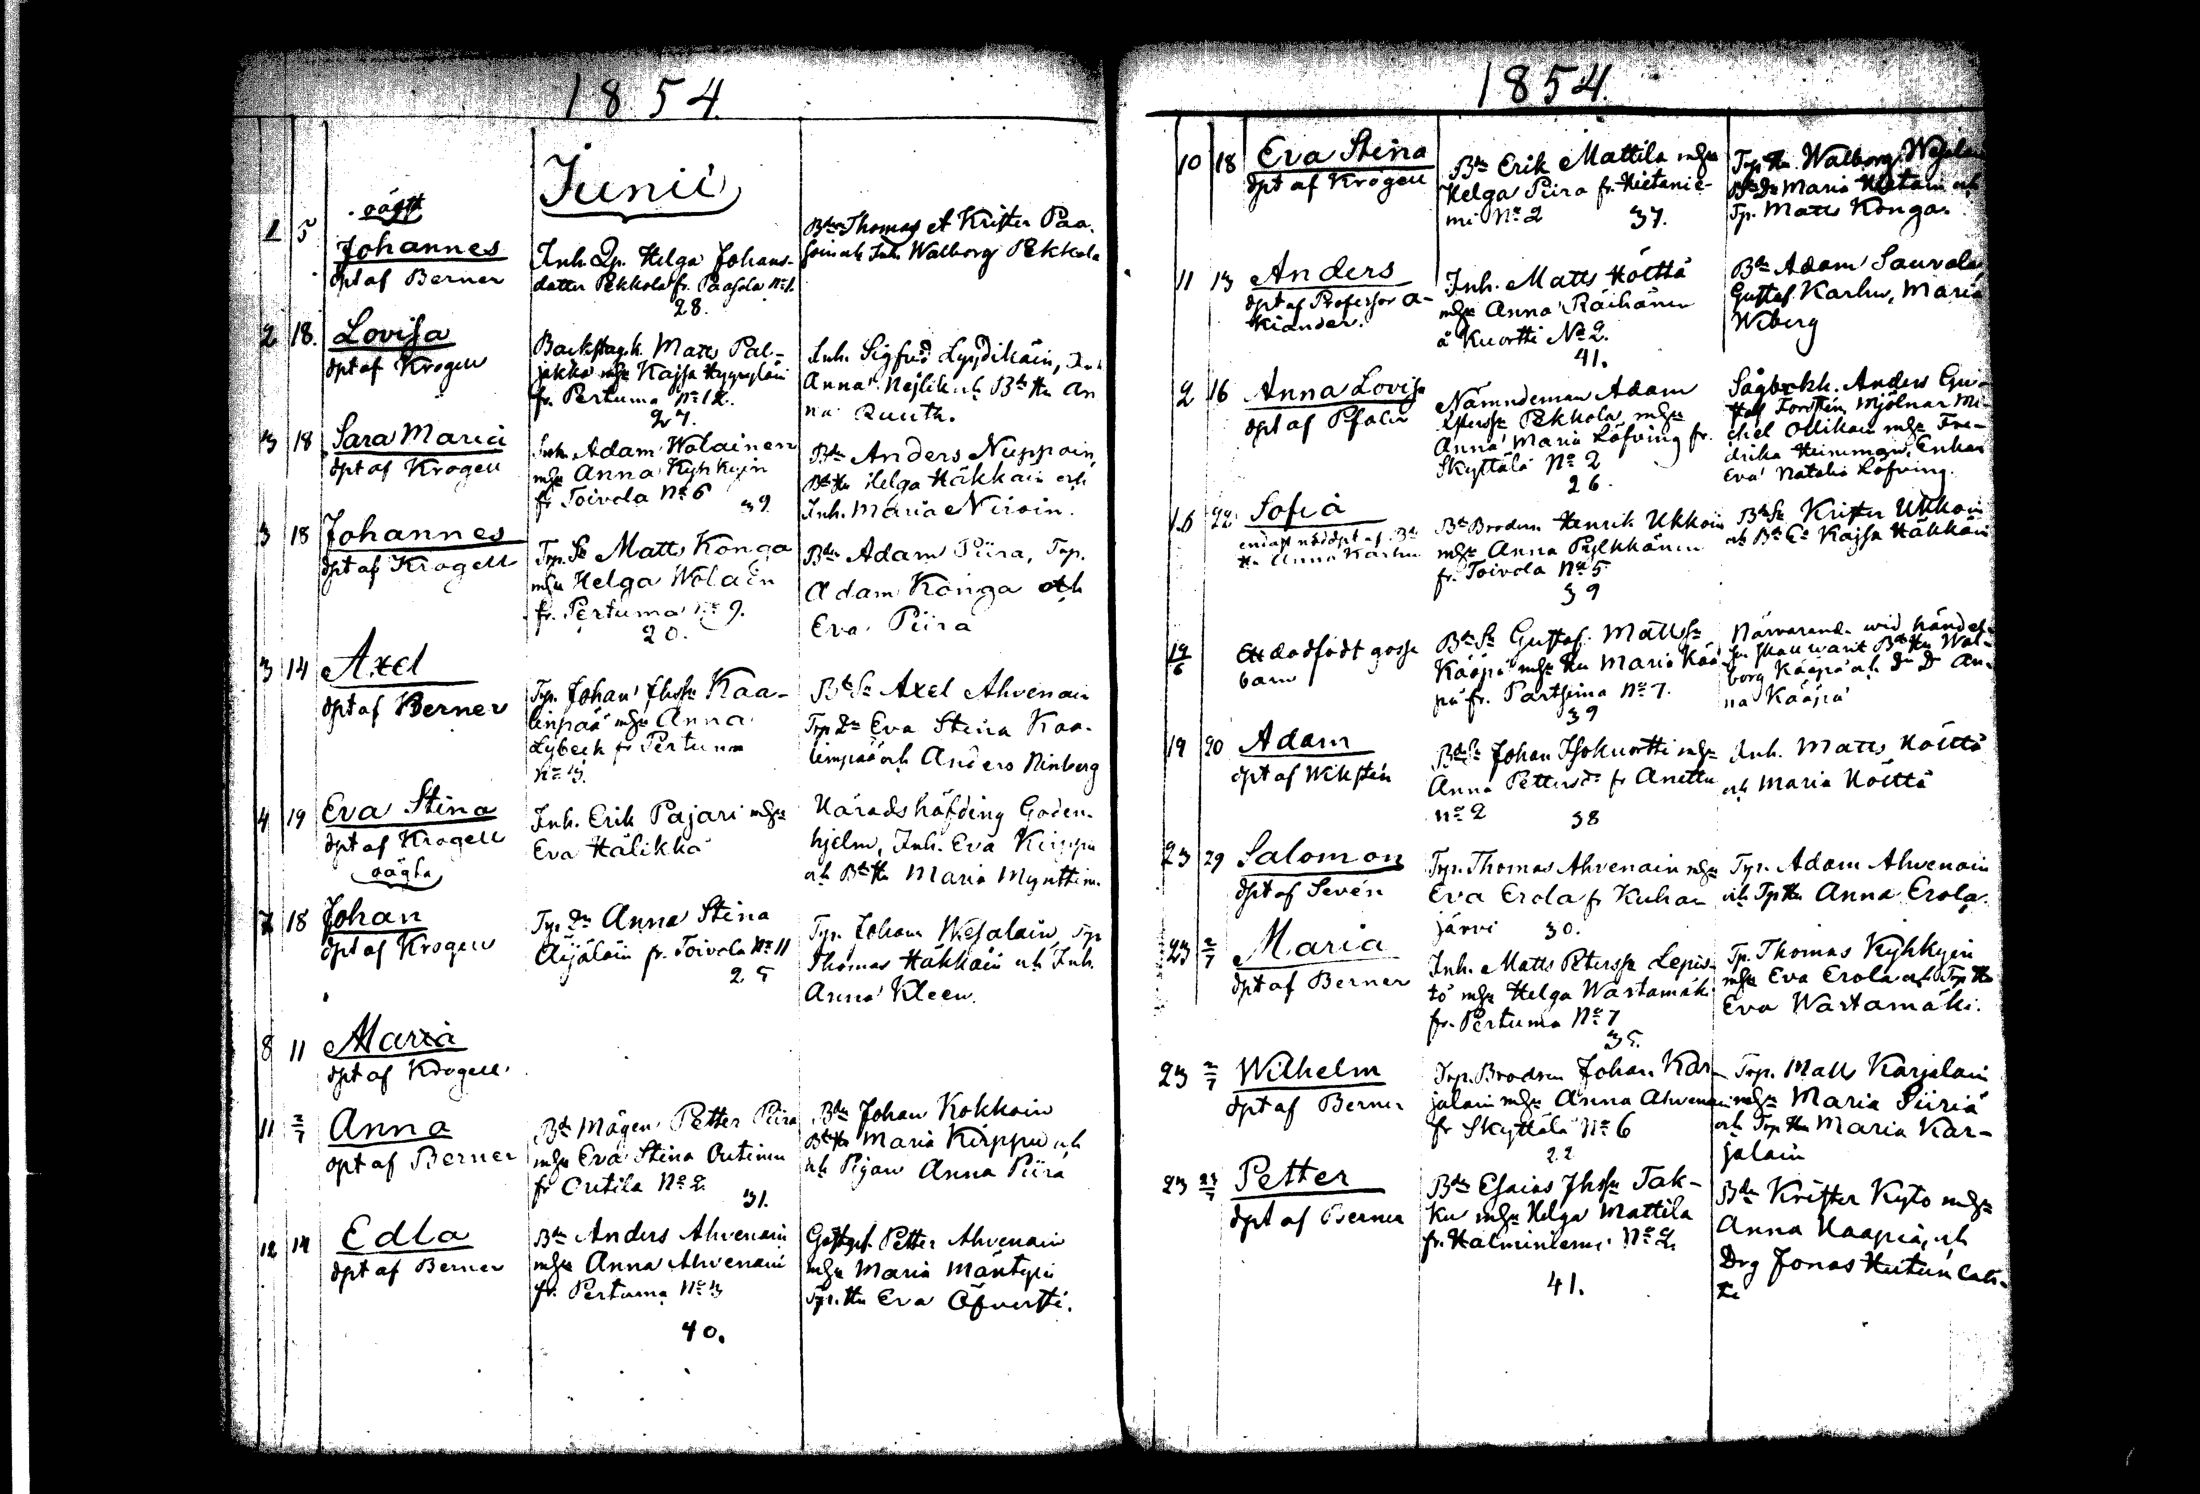 1854.
Junii
oägta
1 5 Johannes
dpt af Berner
Inh. Dr. Helga Johans-
datter Pekkola fr. Paasola No 1.
28.
Bdn Thomas et Krister Paa-
soin och Inh. Walborg Pekkola
2 18. Lovisa
dpt af Krogell
Backstug.k. Matts Pal-
jakka mhu Kajsa
fr. Pertuma No 12.
27.
Inh. Sigfrid Lyydikäin, Inh
Anna och Bd Hu An
na Ruuth.
3 18 Sara Maria
dpt af Krogell
Inh. Adam Wolainen
mhu Anna Kyhkyin
fr Toivola No 6
39
Bdn Anders Nuppoin,
Bd Hu Helga Häkkäin och
Inh. Maria Niroin.
3 18 Johannes
dpt af Krogell
Trp. Sn Matts Konga
mhu Helga Wolain
fr. Pertuma No 9.
20.
Bdn Adam Piira, Trp.
Adam Konga och
Eva Piira
3 14 Axel
dpt af Berner
Trp. Johan Jhssn Kaa-
linpää mhu Anna
Lybeck fr Pertuma
No 3.
Bd Sn Axel Ahvenain
Trp Dr Eva Stina Kaa-
linpää och Anders Ninberg
4 19 Eva Stina
dpt af Krogell
Inh. Erik Pajari mhu
Eva Hälikkä
Häradshöfding Goden-
hjelm, Inh. Eva Kirppu
och Bd Hu Maria Mynttin.
oägta
7 18 Johan
dpt af Krogell
Trp Dr Anna Stina
Äijäläin fr. Toivola No 11
25
Trp. Johan Wesalain, Trp
Thomas Häkkäin och Inh.
Anna Kleen.
8 11 Maria
dpt af Krogell.
11 2/7 Anna
dpt af Berner
Bd Mågen Petter Piira
mhu Eva Stina Outinen
fr Outila No 2.
31.
Bdn Johan Kokkoin
Bd Hu Maria Kirppu och
och Pigan Anna Piira
12 14 Edla
dpt af Berner
Bdn Anders Ahvenain
mhu Anna Ahvenain
fr. Pertuma No 3
40.
Gästgf. Petter Ahvenain
mhu Maria Mäntyin
Trp. Hu Eva Öfverti.
1854.
10 18 Eva Stina
dpt af Krogell
Bdn Erik Mattila mhu
Helga Piira fr. Hietanie-
mi No 2 37.
Trp Hu Walborg Wesalain
Bd Dr Maria Hietain och
Trp. Matts Konga.
11 13 Anders
dpt af Professor A-
kiander.
Inh. Matts Höttä
mhu Anna Räihänen
å Kuortti No 2.
41.
Bdn Adam Saurola,
Gustaf Karhu, Maria
Wiberg
2 16 Anna Lovisa
dpt af Pfaler
Nämndeman Adam
Pekkola mhu
Anna Maria Löfving fr.
Skyttälä No 2
26.
Sågbokh. Anders Gu-
staf Forstén, Mjölnar Mi-
chel Ollikain mhu Fre-
drika Enkan
Eva Natalia Löfving.
16 22 Sofia
endast nöddpt af Bd
Hu Anna Karhu
Bd Brodren Henrik Ukkoin
mhu Anna Pylkkänen
fr. Toivola No 5
39
Bd Sn Krister Ukkoin
och Bd Kajsa Häkkäin
19/6 Ett dödfödt gosse
barn
Bd Sn Gustaf Mattssn
Kääpä mhu Hu Maria Kää-
pä fr. Partsima No 7.
39
Närvarand. wid händel-
sen skall warit Bd Hu Wal-
borg Kääpä och dn Dr An-
na Kääpä
19 20 Adam
dpt af Wikstén
Bd Sn Johan Isokuortti mhu
Anna Pettersdr fr Anettu
No 2 38
Inh. Matts Höttä
och Maria Höttä
23 29 Salomon
dpt af Sevén
Trp. Thomas Ahvenain mhu
Eva Erola fr Kuhan
järvi 30.
Trp. Adam Ahvenain
och Trp Hu Anna Erola.
23 2/7 Maria
dpt af Berner
Inh. Matts Peterssn Lepis-
tö mhu Helga Wartamäki
fr. Pertuma No 7
35.
Tp. Thomas Kyhkyin
mhu Eva Erola och Trp Hu
Eva Wartamäki.
23 2/7 Wilhelm
dpt af Berner
Trp. Brodren Johan Kar-
jalain mhu Anna Ahvenain
fr Skyttälä No 6
22
Trp. Matts Karjalain
mhu Maria Siiriä
och Trp Hu Maria Kar-
jalain
23 23/7 Petter
dpt af Berner
Bdn Esaias Jhssn Tak-
ku mhu Helga Mattila
fr. Halminiemi No 2.
41.
Bdn Krister Kyto mhu
Anna Kaapiä, och
Drg Jonas